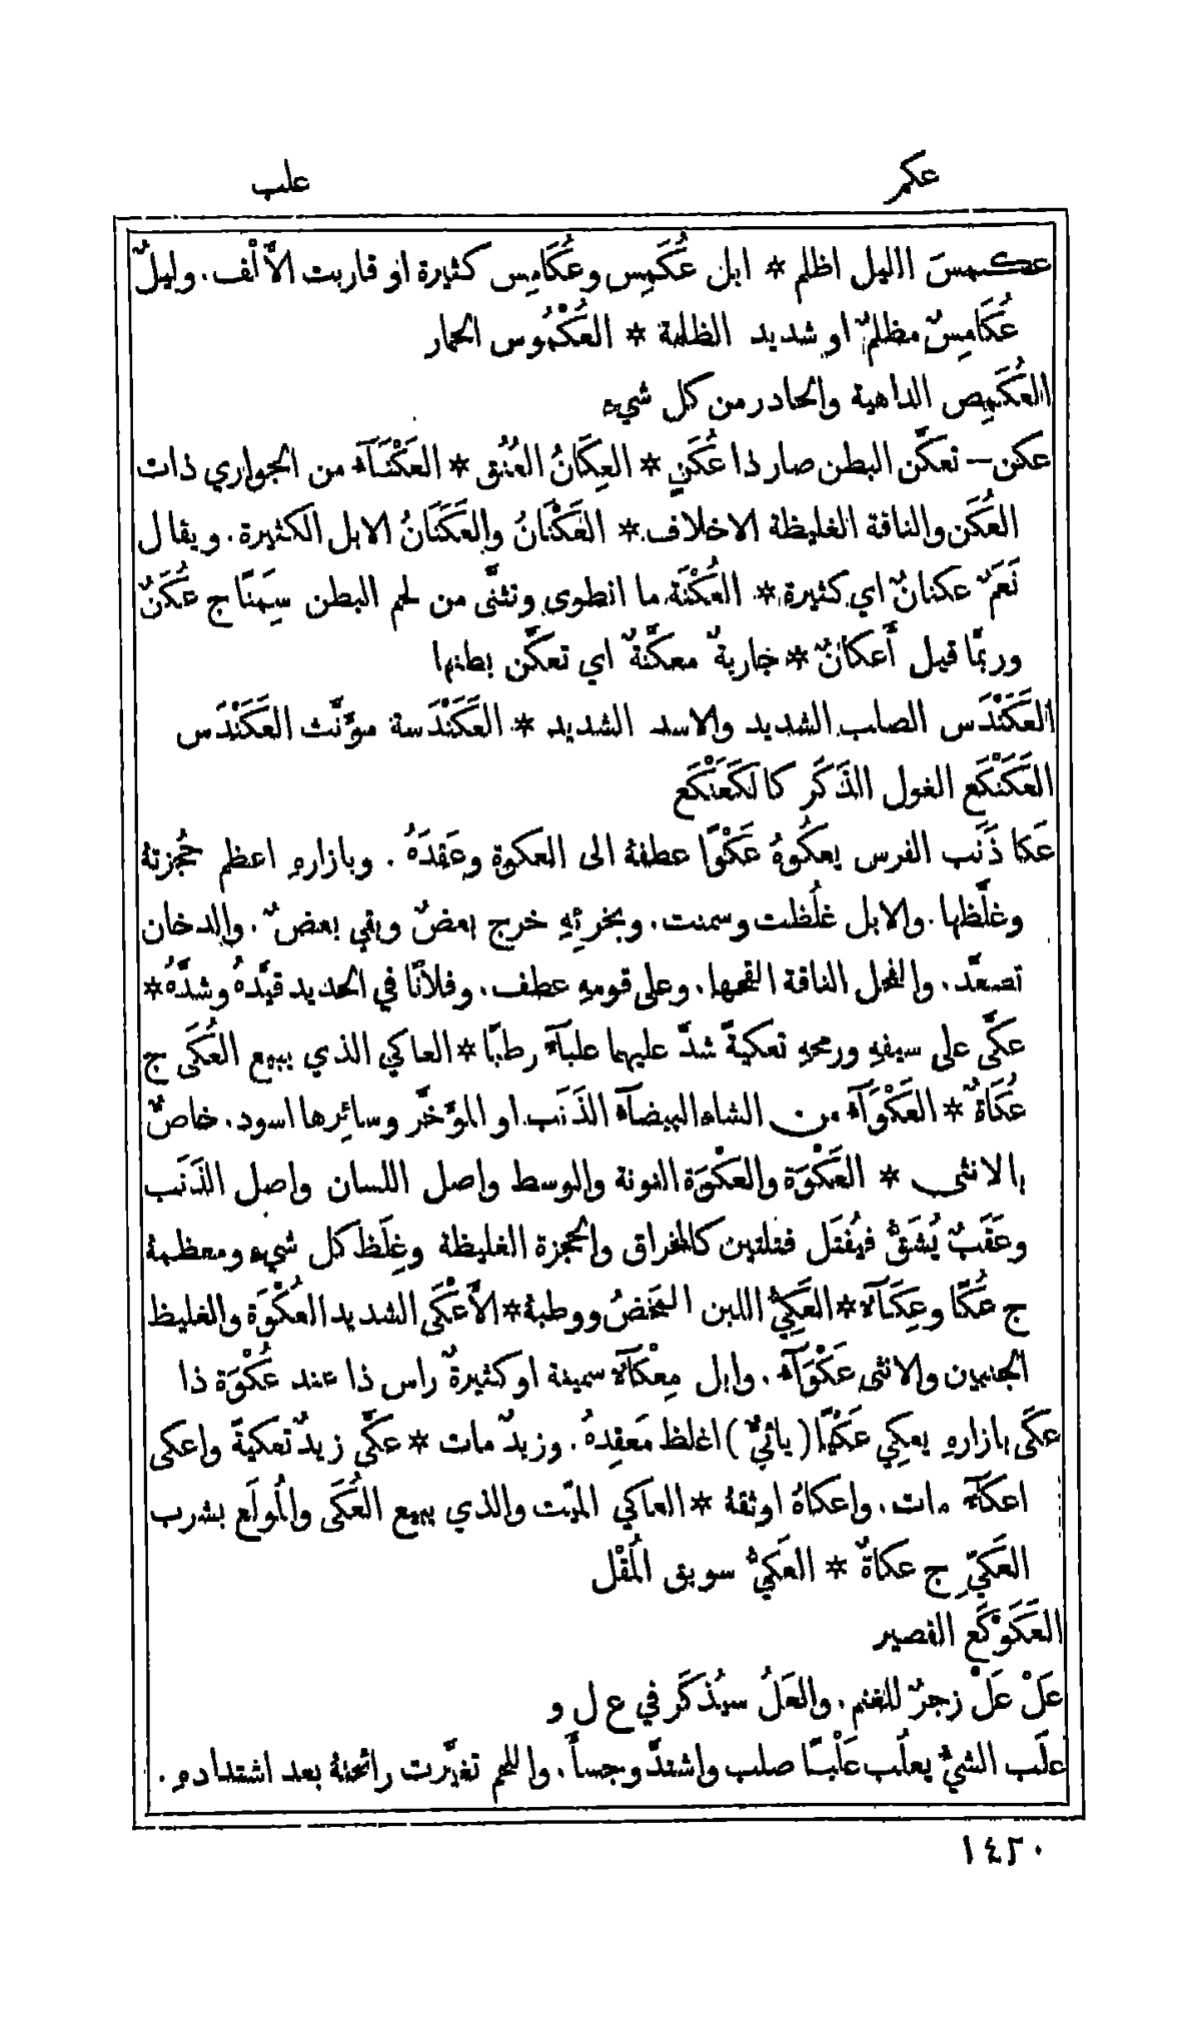 عكمر
علب
عكمسَ الليل اظلم * ابل عُكَمِس وعُكَامِس كثيرة او قاربت الأَلْف. وليلٌ
عُكَامِسٌ مظلمٌ او شديد الظلمة * العُكْمُوس الحمار
العُكَمِص الداهية والحادر من كل شيءٍ
عكن — تعكَّن البطن صار ذا عُكَنٍ * العِكَانُ العُنُق * العَكْنَآءُ من الجواري ذات
العُكَن والناقة الغليظة الاخلاف * العَكْنَانُ والعَكَنَانُ الابل الكثيرة. ويقال
نَعَمٌ عكنانٌ اي كثيرة * العُكْنَة ما انطوى وتثنَّى من لحم البطن سِمَنًا ج عُكَنٌ
وربمَّا قيل أَعكانٌ * جاريةٌ معكَّنةٌ اي تعكَّن بطنها
العَكَنْدَس الصلب الشديد والاسد الشديد * العَكَنْدَسة مؤَنَّث العَكَنْدَس
العَكَنْكَع الغول الذَكَر كالكَعَنْكَع
عَكا ذَنَب الفرس يعكُوهُ عَكْوًا عطفهُ الى العكوة وعَقَدَهُ. وبازارهِ اعظم حُجزتهُ
وغلَّظها. والابل غلُظت وسمنت. وبخرئِهِ خرج بعضٌ وبقي بعضٌ. والدخان
تصعَّد. والفحل الناقة القحها. وعلى قومهِ عطف. وفلانًا في الحديد قيَّدهُ وشدَّهُ *
عكَّى على سيفهِ ورمحهِ تعكيةً شدَّ عليهما علبآءً رطبًا * العاكي الذي يبيع العُكَى ج
عُكَاةٌ * العَكْوَآءُ من الشاءِ البيضآءُ الذَنَب او المؤَخَّر وسائِرها اسود. خاصٌّ
بالانثى * العَكْوَة والعُكْوَة النونة والوسط واصل اللسان واصل الذَنَب
وعَقَبٌ يُشَقُّ فيُفتَل فتلتين كالمخراق والحُجزة الغليظة وغِلَظ كل شيءٍ ومعظمهُ
ج عُكًا وعِكَآءٌ * العَكِيُّ اللبن المَخْضُ ووطبهُ * الأَعْكَى الشديد العُكْوَة والغليظ
الجنبين والانثى عَكْوَآءُ. وابل مِعْكَآءُ سمينة او كثيرةٌ راس ذا عند عُكْوَة ذا
عكَى بازارهِ يعكِي عَكْيًا (يائيٌّ) اغلظ مَعقِدهُ. وزيدٌ مات * عكَّى زيدٌ تعكيةً واعكى
اعكآءً مات. واعكاهُ اوثقهُ * العاكي الميّت والذي يبيع العُكَى والمُولَع بشرب
العَكيّ ج عكاةٌ * العَكيُّ سويق المُقْل
العَكَوْكَع القصير
عَلْ عَلْ زجرٌ للغنم. والعَلُ سيُذكَر في ع ل و
علَب الشيُّ يعلُب عَلْبًا صلب واشتدَّ وجسأَ. واللحم تغيَّرت رائحتهُ بعد اشتدادهِ.
١٤٢٠